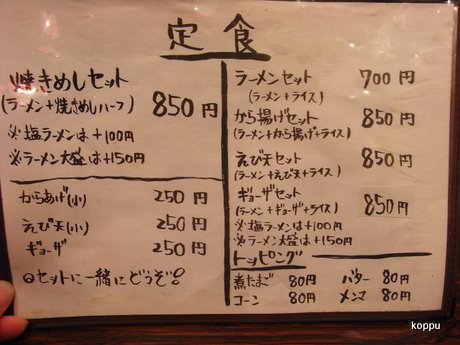 定食
焼きめしセット
(ラーメン+焼きめしハーフ) 850円
※塩ラーメンは+100円
※ラーメン大盛は+150円
からあげ(小) 250円
えび天(小) 250円
ギョーザ 250円
セットに一緒にどうぞ!
ラーメンセット 700円
(ラーメン+ライス)
から揚げセット 850円
(ラーメン+から揚げ+ライス)
えび天セット 850円
(ラーメン+えび天+ライス)
ギョーザセット 850円
(ラーメン+ギョーザ+ライス)
※塩ラーメンは+100円
※ラーメン大盛は+150円
トッピング
煮たまご 80円 バター 80円
コーン 80円 メンマ 80円
koppu